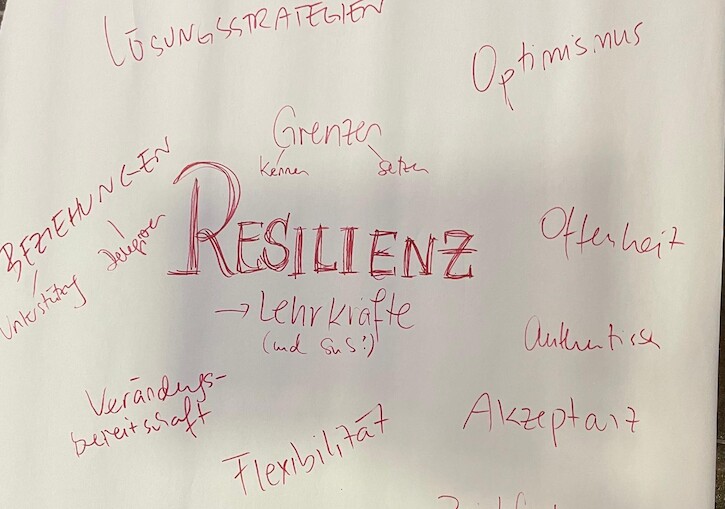 LÖSUNGSSTRATEGIEN
Optimismus
Grenzen
kennen setzen
BEZIEHUNGEN
Unterstützung
RESILIENZ
→ Lehrkräfte
(und SuS!)
Offenheit
Authentisch
Verändungs-
bereitschaft
Akzeptanz
Flexibilität